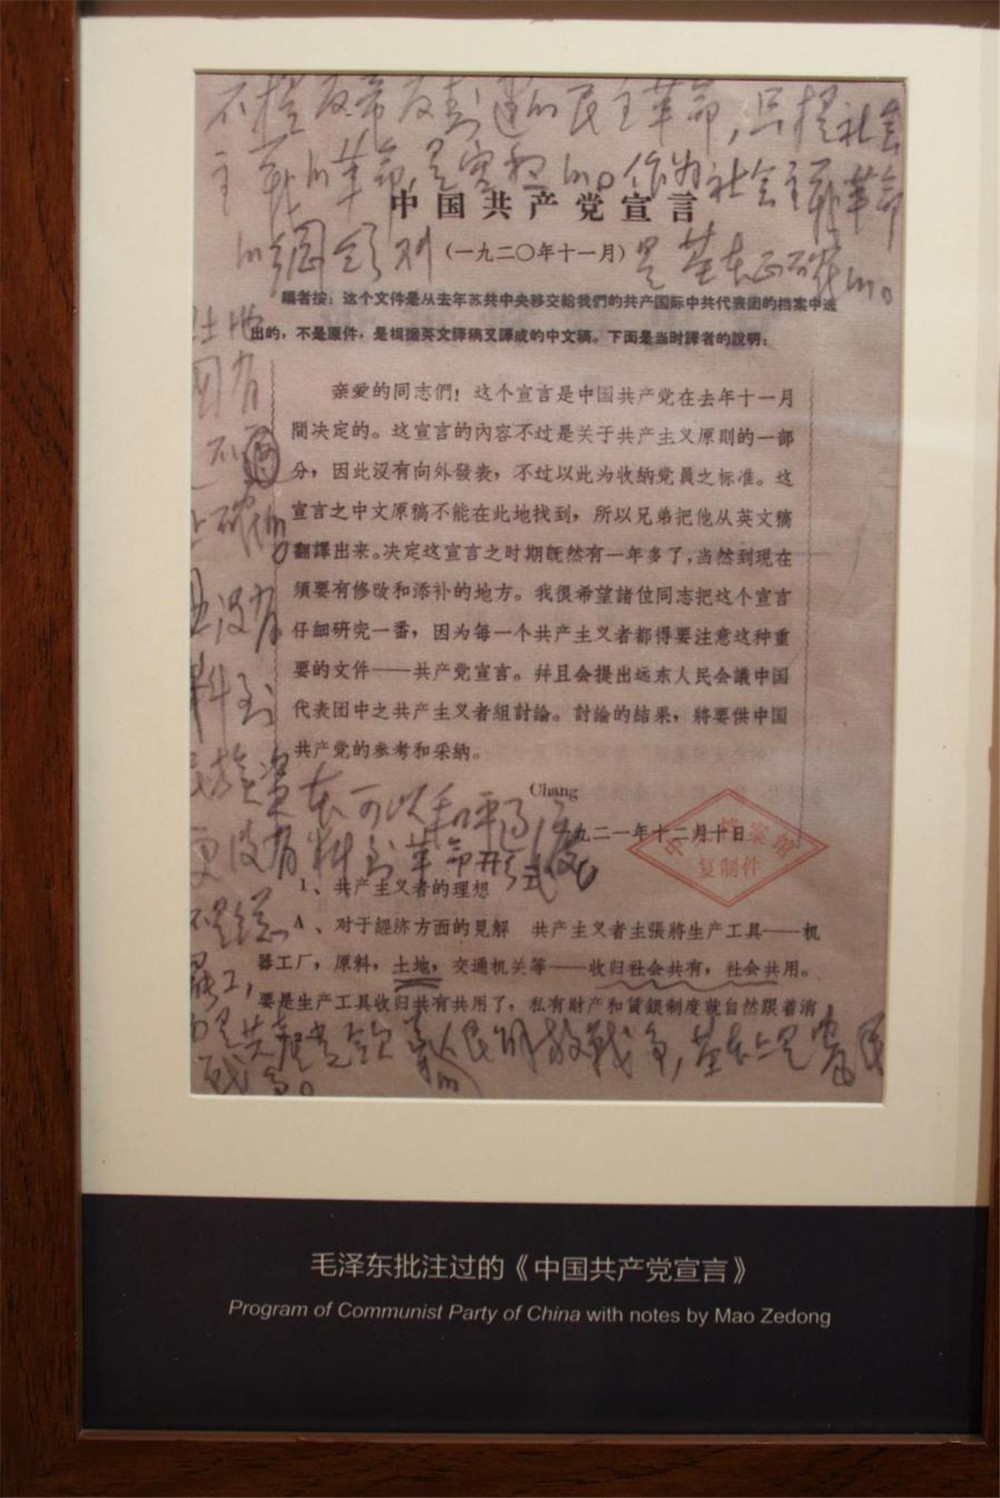 不提反帝反封建的民主革命，只提社会
主义的革命，是空想的。作为社会主义革命
的纲领则是基本正确的。
中国共产党宣言
（一九二〇年十一月）
編者按：这个文件是从去年苏共中央移交給我們的共产国际中共代表团的档案中选
出的，不是原件，是根据英文譯稿又譯成的中文稿。下面是当时譯者的說明：
亲爱的同志們！这个宣言是中国共产党在去年十一月
間决定的。这宣言的內容不过是关于共产主义原則的一部
分，因此沒有向外發表，不过以此为收納党員之标准。这
宣言之中文原稿不能在此地找到，所以兄弟把他从英文稿
翻譯出来。决定这宣言之时期既然有一年多了，当然到現在
須要有修改和添补的地方。我很希望諸位同志把这个宣言
仔細研究一番，因为每一个共产主义者都得要注意这种重
要的文件——共产党宣言。幷且会提出远东人民会議中国
代表团中之共产主义者組討論。討論的結果，將要供中国
共产党的参考和采納。
Chang
一九二一年十二月十日
档案馆
复制件
土地
国有
不
正确的。
沒有
料到
民族资本可以和平过渡。
更没有料到革命形式
1、共产主义者的理想
A、对于經济方面的見解　共产主义者主張將生产工具——机
器工厂，原料，土地，交通机关等——收归社会共有，社会共用。
要是生产工具收归共有共用了，私有財产和賃銀制度就自然跟着消
不是总
罢工，
而是共产党领导的人民解放战争，基本上是农民
战争。
毛泽东批注过的《中国共产党宣言》
Program of Communist Party of China with notes by Mao Zedong